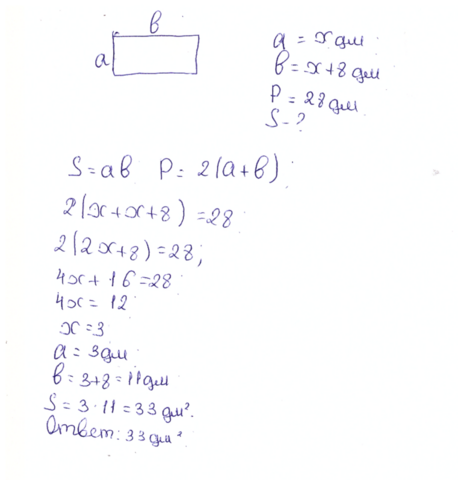 в
а
а = х дм
в = х+8 дм
P = 28 дм
S - ?
S = ав P = 2(а+в)
2(х+х+8) = 28
2(2х+8) = 28;
4х + 16 = 28
4х = 12
х = 3
а = 3 дм
в = 3+8 = 11 дм
S = 3 · 11 = 33 дм².
Ответ: 33 дм²